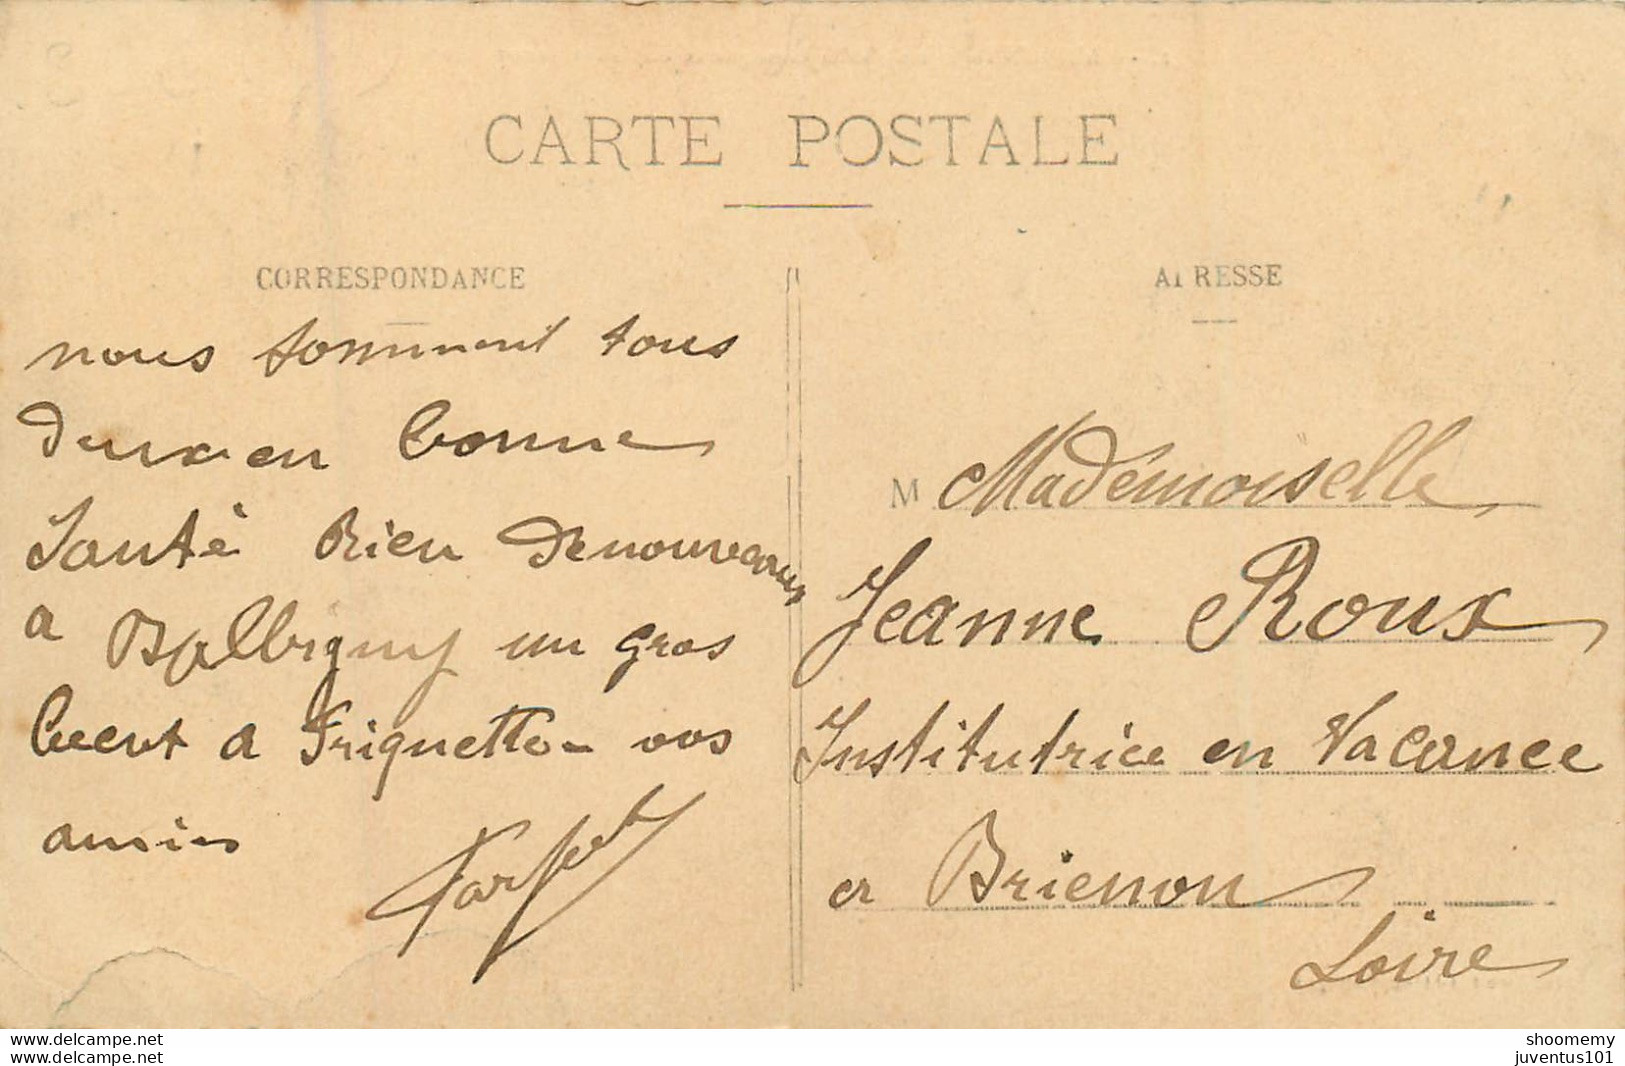 CARTE POSTALE
CORRESPONDANCE
nous sommeut tous
deux en bonne
Santé Rien de nouveaux
a Balbigny un gros
becut a Friquette - vos
amies
ADRESSE
M Mademoiselle
Jeanne Roux
Institutrice en Vacance
a Brienon
Loire
www.delcampe.net
www.delcampe.net
shoomemy
juventus101